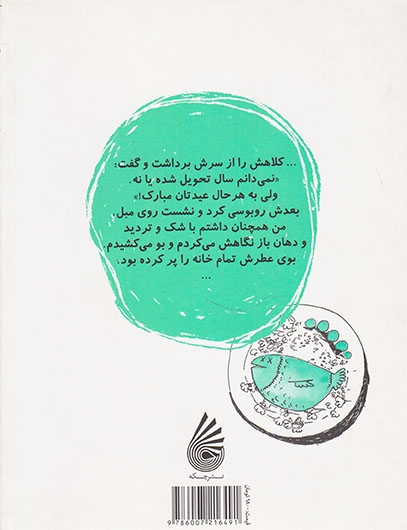 ... کلاهش را از سرش برداشت و گفت:
«نمی‌دانم سال تحویل شده یا نه.
ولی به هرحال عیدتان مبارک!»
بعدش روبوسی کرد و نشست روی مبل.
من همچنان داشتم با شک و تردید
و دهان باز نگاهش می‌کردم و بو می‌کشیدم.
بوی عطرش تمام خانه را پر کرده بود.
...
نشر چکه
9 786007 216491